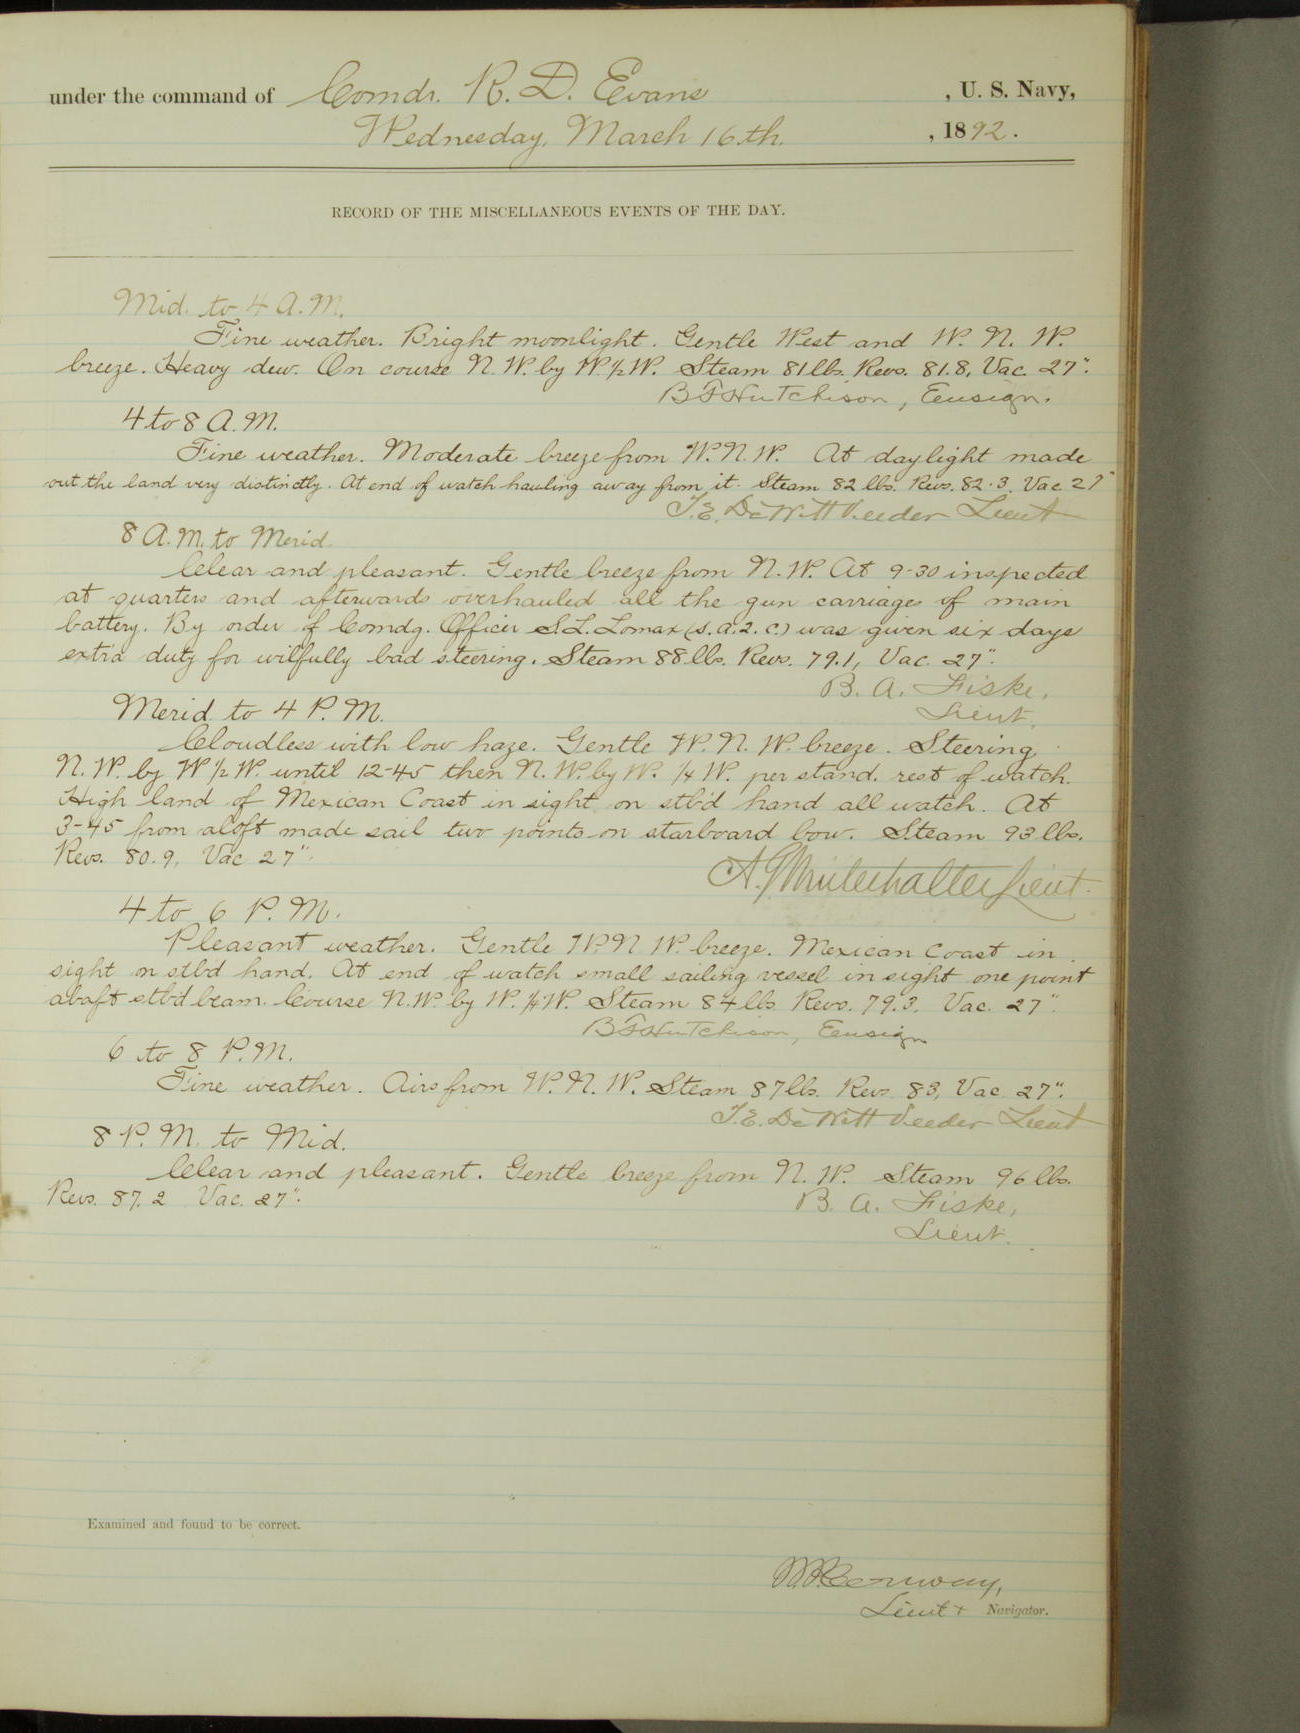 under the command of Comdr. R. D. Evans , U. S. Navy,
Wednesday, March 16th. , 1892.
RECORD OF THE MISCELLANEOUS EVENTS OF THE DAY.
Mid. to 4 A.M.
Fine weather. Bright moonlight. Gentle West and W. N. W.
breeze. Heavy dew. On course N. W. by W. ½ W. Steam 81 lbs. Revs. 81.8, Vac. 27".
B F Hutchison, Ensign.
4 to 8 A.M.
Fine weather. Moderate breeze from W. N. W. At daylight made
out the land very distinctly. At end of watch hauling away from it. Steam 82 lbs. Revs. 82.3. Vac 27"
T. E. DeWitt Veeder Lieut
8 A.M. to Merid.
Clear and pleasant. Gentle breeze from N. W. At 9-30 inspected
at quarters and afterwards overhauled all the gun carriages of main
battery. By order of Comdg. Officer S. L. Lomax (s. a. 2. c.) was given six days
extra duty for wilfully bad steering. Steam 88 lbs. Revs. 79.1, Vac. 27".
B. A. Fiske,
Lieut.
Merid. to 4 P. M.
Cloudless with low haze. Gentle W. N. W. breeze. Steering
N. W. by W ½ W. until 12-45 then N. W. by W. ¼ W. per stand. rest of watch.
High land of Mexican Coast in sight on stb'd hand all watch. At
3-45 from aloft made sail two points on starboard bow. Steam 93 lbs.
Revs. 80.9, Vac 27".
Lieut.
4 to 6 P. M.
Pleasant weather. Gentle W. N W. breeze. Mexican Coast in
sight on stb'd hand. At end of watch small sailing vessel in sight one point
abaft stb'd beam. Course N. W. by W. ¼ W. Steam 84 lbs. Revs. 79.3. Vac. 27".
B F Hutchison, Ensign
6 to 8 P.M.
Fine weather. Airs from W. N. W. Steam 87 lbs. Revs 83, Vac 27".
T. E. DeWitt Veeder Lieut
8 P. M. to Mid.
Clear and pleasant. Gentle breeze from N. W. Steam 96 lbs.
Revs. 87.2 Vac. 27".
B. A. Fiske,
Lieut.
Examined and found to be correct.
Conway,
Lieut Navigator.